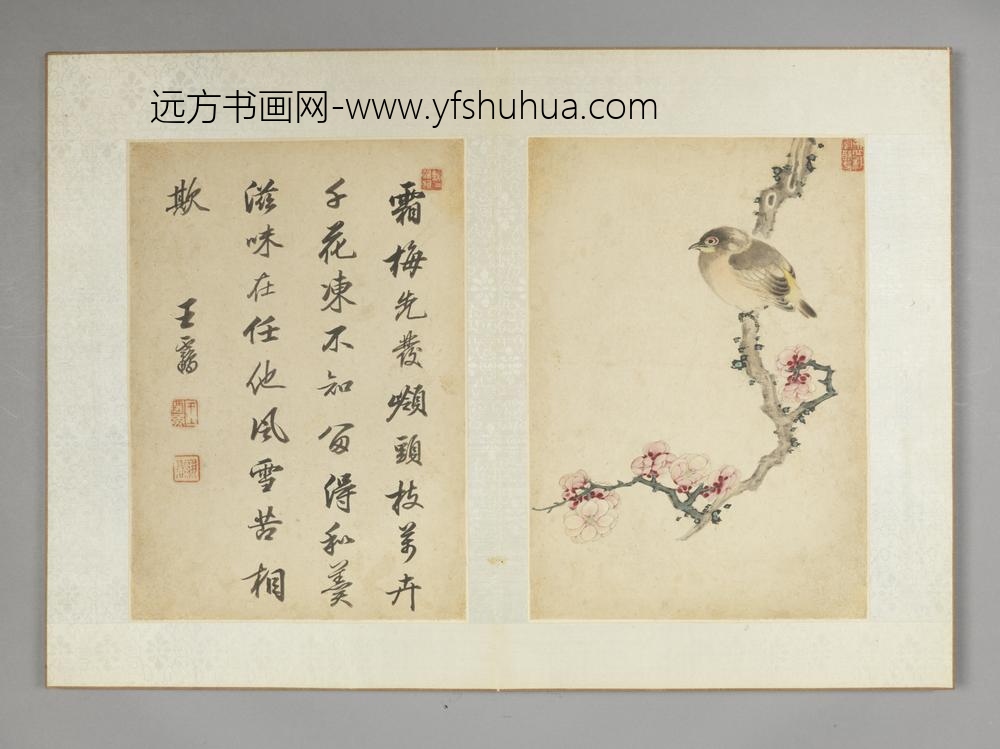 远方书画网-www.yfshuhua.com
霜梅先發嶺頭枝萬卉
千花凍不知留得和羹
滋味在任他風雪苦相
欺
王